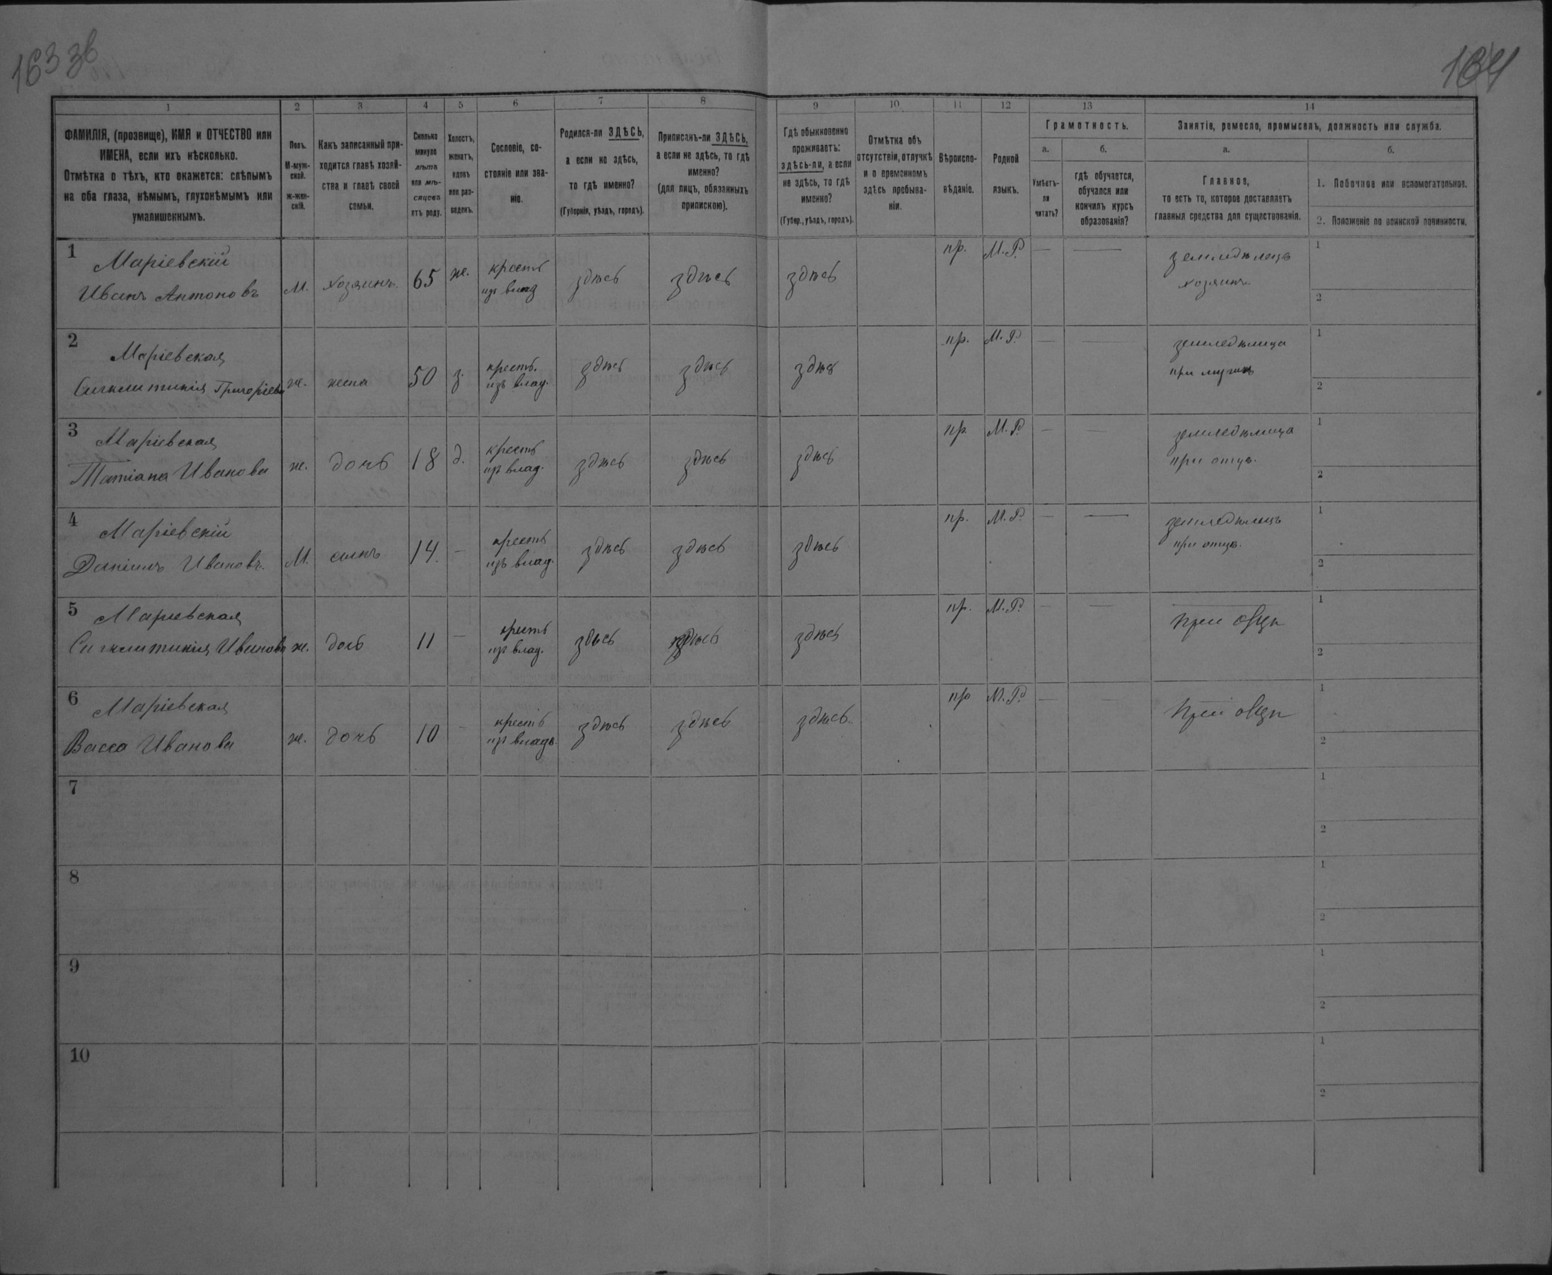 163 зв
164
1 2 3 4 5 6 7 8 9 10 11 12 13 14
ФАМИЛІЯ, (прозвище), ИМЯ и ОТЧЕСТВО или
ИМЕНА, если ихъ нѣсколько.
Отмѣтка о тѣхъ, кто окажется: слѣпымъ
на оба глаза, нѣмымъ, глухонѣмымъ или
умалишеннымъ.
Полъ.
М-муж-
ской.
ж-жен-
скій.
Какъ записанный при-
ходится главѣ хозяй-
ства и главѣ своей
семьи.
Сколько
минуло
лѣтъ
или мѣ-
сяцевъ
отъ роду.
Холостъ,
женатъ,
вдовъ
или раз-
веденъ.
Сословіе, со-
стояніе или зва-
ніе.
Родился-ли ЗДѢСЬ,
а если не здѣсь,
то гдѣ именно?
(Губернія, уѣздъ, городъ).
Приписанъ-ли ЗДѢСЬ,
а если не здѣсь, то гдѣ
именно?
(для лицъ, обязанныхъ
припискою).
Гдѣ обыкновенно
проживаетъ:
здѣсь-ли, а если
не здѣсь, то гдѣ
именно?
(Губер., уѣздъ, городъ).
Отмѣтка объ
отсутствіи, отлучкѣ
и о временномъ
здѣсь пребыва-
ніи.
Вѣроиспо-
вѣданіе.
Родной
языкъ.
Грамотность.
а.
Умѣетъ-
ли
читать?
б.
гдѣ обучается,
обучался или
кончилъ курсъ
образованія?
Занятіе, ремесло, промыселъ, должность или служба.
а.
Главное,
то есть то, которое доставляетъ
главныя средства для существованія.
б.
1. Побочное или вспомогательное.
2. Положеніе по воинской повинности.
1 Маріевскій
Иванъ Антоновъ М. хозяинъ 65 ж. крестъ
изъ влад здѣсь здѣсь здѣсь пр. М.Р. — — земледѣлецъ
хозяинъ 1
2
2 Маріевская
Синклитикія Григоріева ж. жена 50 з. крестъ.
изъ влад. здѣсь здѣсь здѣсь пр. М.Р. — — земледѣлица
при мужѣ 1
2
3 Маріевская
Татіана Иванова ж. дочь 18 д. крестъ
изъ влад. здѣсь здѣсь здѣсь пр М.Р. — — земледѣлица
при отцѣ. 1
2
4 Маріевскій
Даніилъ Ивановъ. М. сынъ 14. — крестъ
изъ влад. здѣсь здѣсь здѣсь пр. М.Р. — — земледѣлецъ
при отцѣ. 1
2
5 Маріевская
Синклитикія Иванова ж. дочь 11 — крестъ
изъ влад. здѣсь здѣсь здѣсь пр. М.Р. — — при отцѣ 1
2
6 Маріевская
Васса Иванова ж. дочь 10 — крестъ
изъ владѣ. здѣсь здѣсь здѣсь пр М.Р. — — при отцѣ 1
2
7 1
2
8 1
2
9 1
2
10 1
2